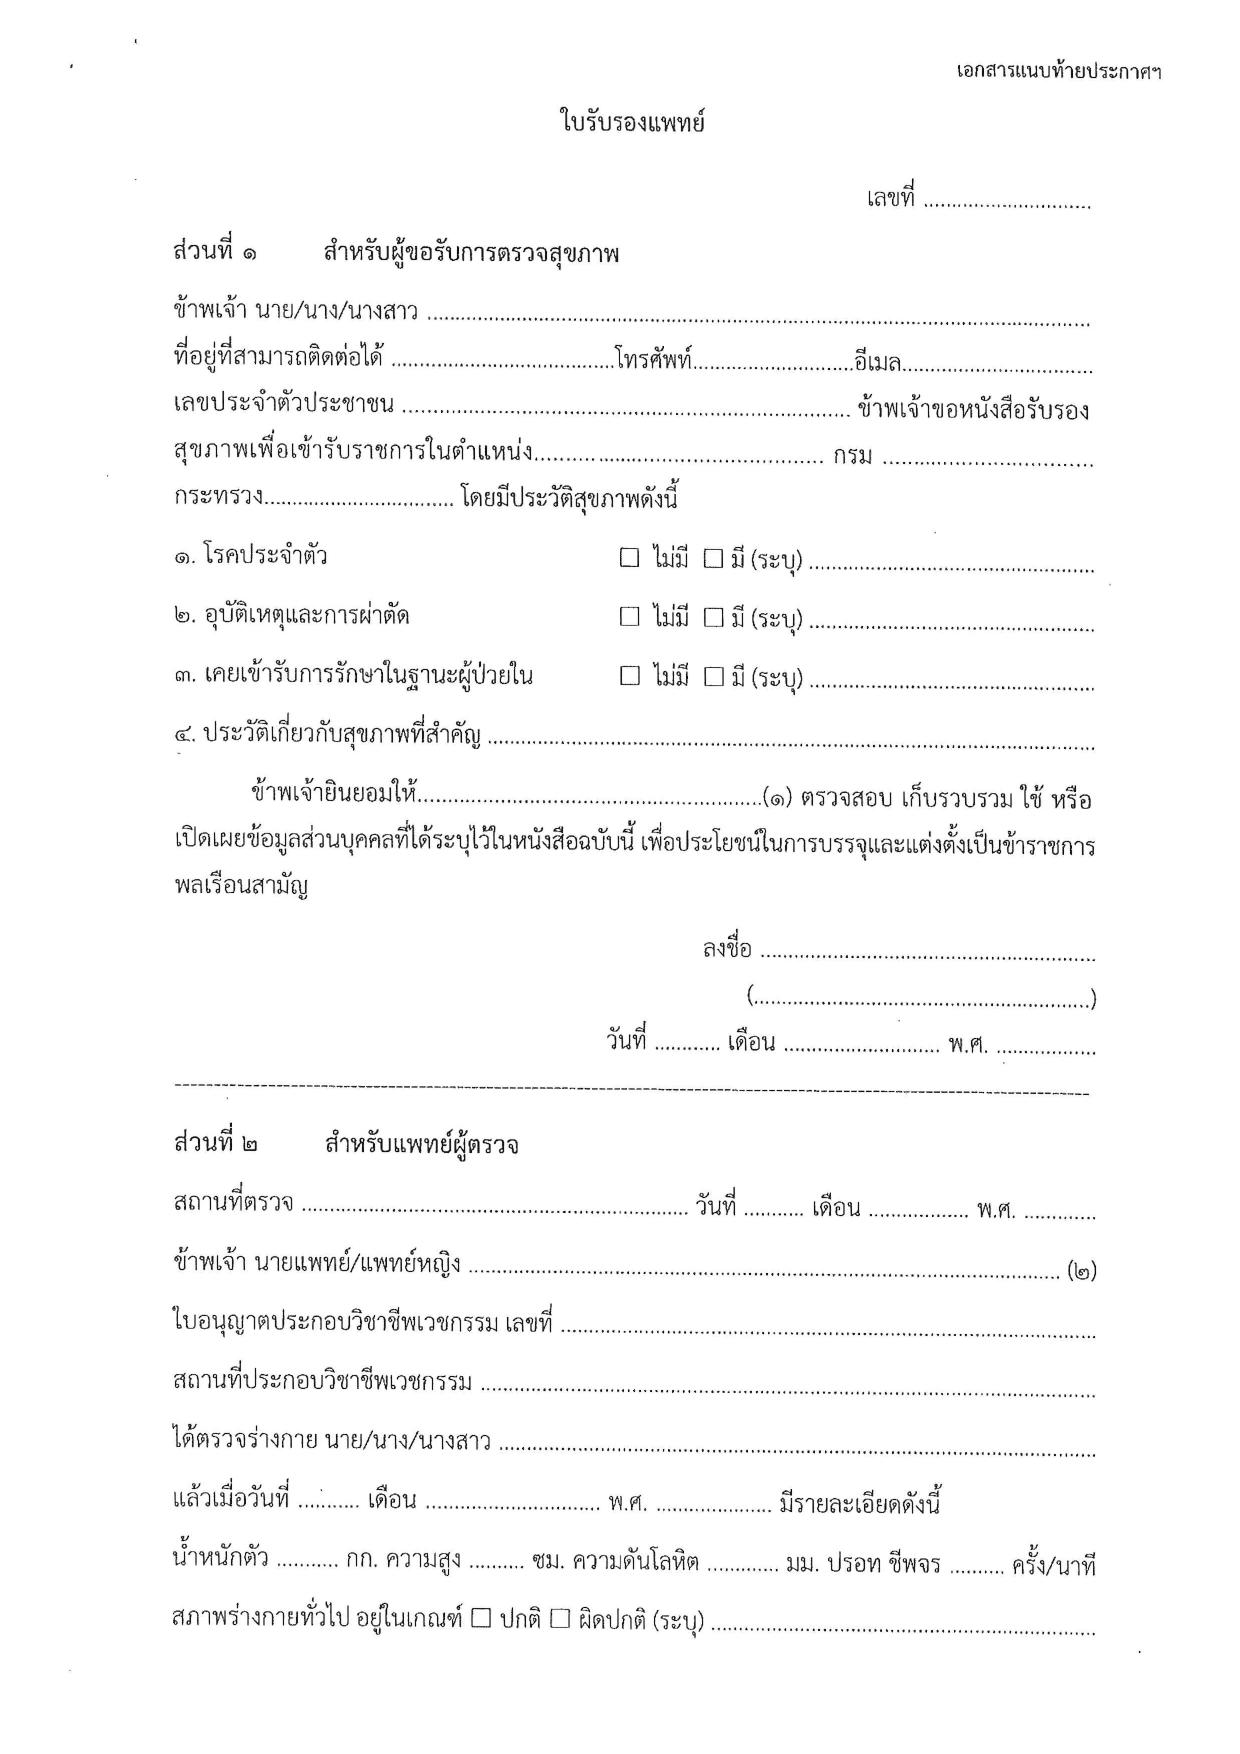 เอกสารแนบท้ายประกาศฯ
ใบรับรองแพทย์
เลขที่ ..............................
ส่วนที่ ๑ สำหรับผู้ขอรับการตรวจสุขภาพ
ข้าพเจ้า นาย/นาง/นางสาว ........................................................................................................................
ที่อยู่ที่สามารถติดต่อได้ ........................................โทรศัพท์.............................อีเมล..................................
เลขประจำตัวประชาชน ................................................................................. ข้าพเจ้าขอหนังสือรับรอง
สุขภาพเพื่อเข้ารับราชการในตำแหน่ง.................................................... กรม ......................................
กระทรวง.................................. โดยมีประวัติสุขภาพดังนี้
๑. โรคประจำตัว ☐ ไม่มี ☐ มี (ระบุ) ....................................................
๒. อุบัติเหตุและการผ่าตัด ☐ ไม่มี ☐ มี (ระบุ) ....................................................
๓. เคยเข้ารับการรักษาในฐานะผู้ป่วยใน ☐ ไม่มี ☐ มี (ระบุ) ....................................................
๔. ประวัติเกี่ยวกับสุขภาพที่สำคัญ ..............................................................................................................
ข้าพเจ้ายินยอมให้..............................................................(๑) ตรวจสอบ เก็บรวบรวม ใช้ หรือ
เปิดเผยข้อมูลส่วนบุคคลที่ได้ระบุไว้ในหนังสือฉบับนี้ เพื่อประโยชน์ในการบรรจุและแต่งตั้งเป็นข้าราชการ
พลเรือนสามัญ
ลงชื่อ ............................................................
(............................................................)
วันที่ ............ เดือน ............................ พ.ศ. ..................
--------------------------------------------------------------------------------
ส่วนที่ ๒ สำหรับแพทย์ผู้ตรวจ
สถานที่ตรวจ ...................................................................... วันที่ ........... เดือน .................. พ.ศ. .............
ข้าพเจ้า นายแพทย์/แพทย์หญิง ........................................................................................................... (๒)
ใบอนุญาตประกอบวิชาชีพเวชกรรม เลขที่ .................................................................................................
สถานที่ประกอบวิชาชีพเวชกรรม ...............................................................................................................
ได้ตรวจร่างกาย นาย/นาง/นางสาว ............................................................................................................
แล้วเมื่อวันที่ ........... เดือน ............................... พ.ศ. ..................... มีรายละเอียดดังนี้
น้ำหนักตัว ........... กก. ความสูง .......... ซม. ความดันโลหิต ............. มม. ปรอท ชีพจร .......... ครั้ง/นาที
สภาพร่างกายทั่วไป อยู่ในเกณฑ์ ☐ ปกติ ☐ ผิดปกติ (ระบุ) .....................................................................